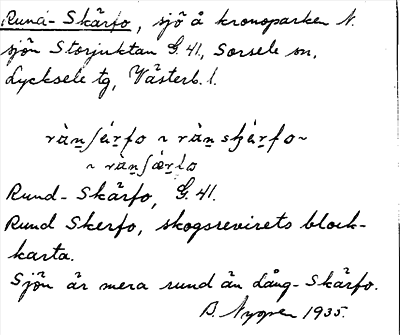 Runa-Skärfo, sjö å kronoparken N.
sjön Storjuktan G. 41, Sorsele sn,
Lycksele tg, Västerb. l.
Rund-Skärfo, G. 41.
Rund Skerfo, skogsrevirets block-
karta.
Sjön är mera rund än Lång-Skärfo.
B. 1935.